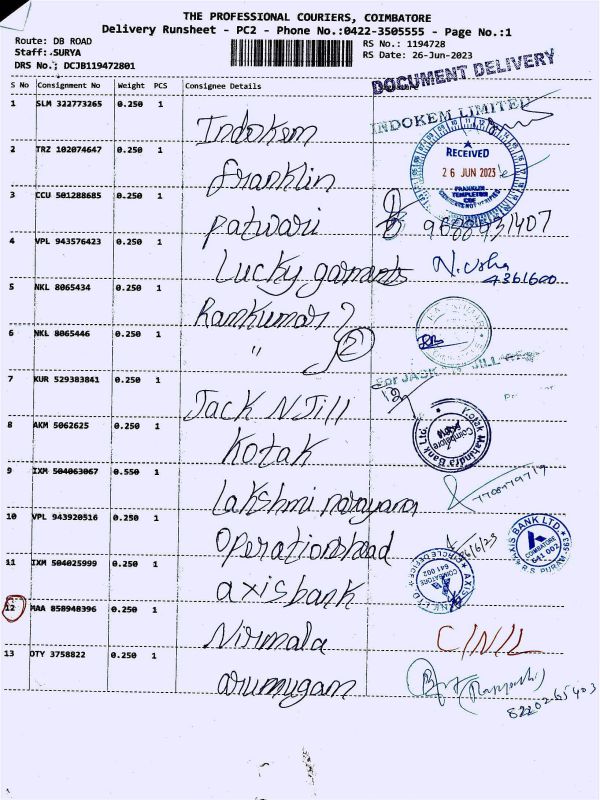 THE PROFESSIONAL COURIERS, COIMBATORE
Delivery Runsheet - PC2 - Phone No.:0422-3505555 - Page No.:1
Route: DB ROAD
RS No.: 1194728
Staff: SURYA
RS Date: 26-Jun-2023
DRS No.; DCJB119472801
DOCUMENT DELIVERY
S No Consignment No Weight PCS Consignee Details
1 SLM 322773265 0.250 1 Indokem INDOKEM LIMITED
2 TRZ 102074647 0.250 1 franklin RECEIVED 26 JUN 2023 FRANKLIN TEMPLETON
3 CCU 501288685 0.250 1 patwari
4 VPL 943576423 0.250 1 Lucky garments N. Usha 4361600
5 NKL 8065434 0.250 1 Ramkumar
6 NKL 8065446 0.250 1 " 2
For JACK N JILL
7 KUR 529383841 0.250 1 Jack N Jill
8 AKM 5062625 0.250 1 Kotak Kotak Mahindra Bank Ltd. Coimbatore
9 IXM 504063067 0.550 1 Lakshmi narayana
10 VPL 943920516 0.250 1 Operationshead AXIS BANK LTD. COIMBATORE 641 002
11 IXM 504025999 0.250 1 axis bank AXIS BANK LTD CIRCLE OFFICE COIMBATORE 641 002
12 MAA 858948396 0.250 1 Nirmala C/N/L
13 OTY 3758822 0.250 1 arumugam 8220265403